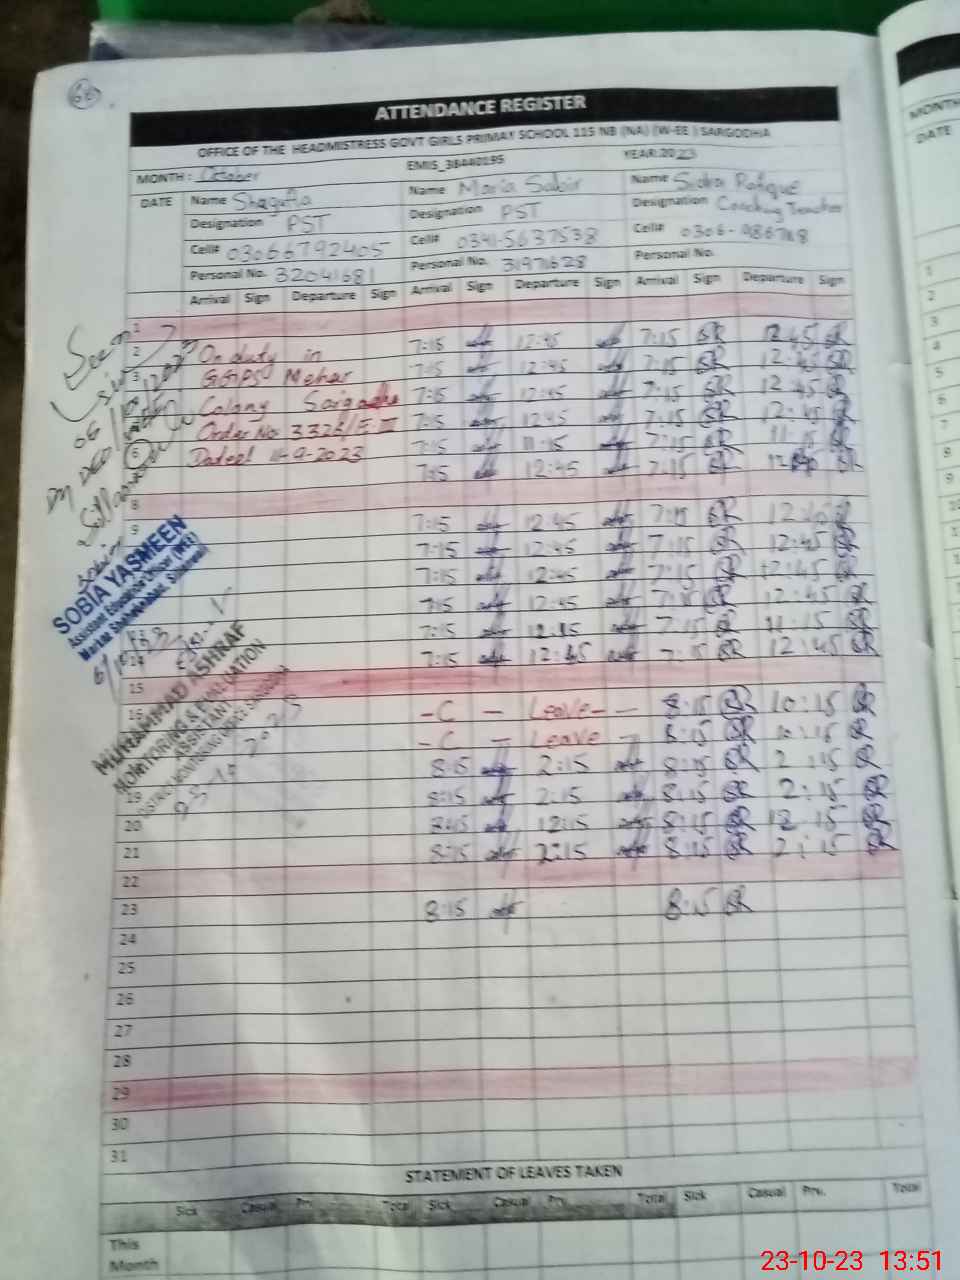 ATTENDANCE REGISTER
OFFICE OF THE HEADMISTRESS GOVT GIRLS PRIMAY SCHOOL 115 NB (NA) (W-EE) SARGODHA
MONTH: October EMIS_38440195 YEAR:2023
DATE Name Shagufta Name Maria Sabir Name Sidra Rafique
Designation PST Designation PST Designation Coaching Teacher
Cell# 03066792405 Cell# 0341-5637538 Cell# 0306-
Personal No. 32041681 Personal No. 31971628 Personal No.
Arrival Sign Departure Sign Arrival Sign Departure Sign Arrival Sign Departure Sign
1
2 On duty in 7:15 12:45 7:15 SR 12:45 SR
3 GGPS Meher 7:15 12:45 7:15 SR 12:45 SR
Colany Sargodha 7:15 12:45 7:15 SR 12:45 SR
Order No 3326/E-III 7:15 12:45 7:15 SR 12:45 SR
6 Dated! 14-9-2023 7:15 11:15 7:15 SR 11:15 SR
7:15 12:45 7:15 SR SR
8
9 7:15 12:45 7:15 SR 12:45 SR
7:15 12:45 7:15 SR 12:45 SR
7:15 12:45 7:15 SR 12:45 SR
7:15 12:45 7:15 SR 12:45 SR
7:15 7:15 SR 11:15 SR
14 7:15 12:45 7:15 SR 12:45 SR
15
16 -C - Leave - - 8:15 SR 10:15 SR
-C - Leave - 8:15 SR 10:15 SR
8:15 2:15 8:15 SR 2:15 SR
19 8:15 2:15 8:15 SR 2:15 SR
20 8:15 12:15 8:15 SR 12:15 SR
21 8:15 2:15 8:15 SR 2:15 SR
22
23 8:15 8:15 SR
24
25
26
27
28
29
30
31
Seen
SOBIA YASMEEN
Assistant Education Officer (WEE)
Markaz
MUHAMMAD ASHRAF
MONITORING & EVALUATION
ASSISTANT
STATEMENT OF LEAVES TAKEN
Sick Casual Prv. Total Sick Casual Prv. Total Sick Casual Prv. Total
This
Month
MONTH
DATE
1
2
3
4
5
6
7
8
9
10
23-10-23 13:51